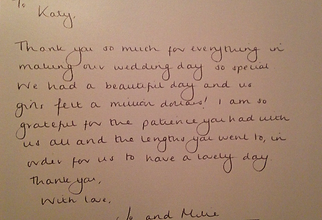 To Katy,
Thank you so much for everything in
making our wedding day so special
We had a beautiful day and us
girls felt a million dollars! I am so
grateful for the patience you had with
us all and the lengths you went to, in
order for us to have a lovely day
Thank you,
With love,
and